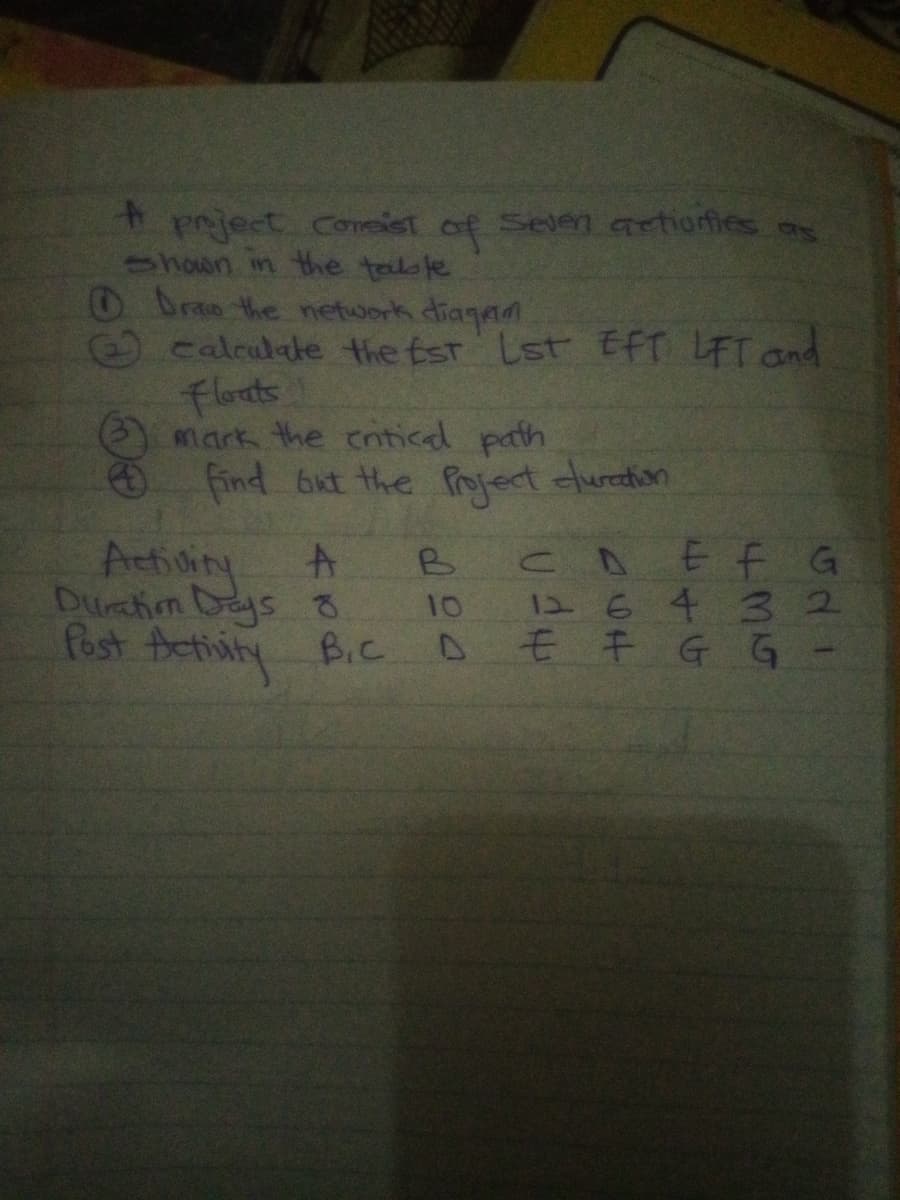 A project consist of seven activities as
shown in the table
① Draw the network diagram
② calculate the EST LST EFT LFT and
floats
③ mark the critical path
④ find out the Project duration
Activity A B C D E F G
Duration Days 8 10 12 6 4 3 2
Post Activity B,C D E F G G -